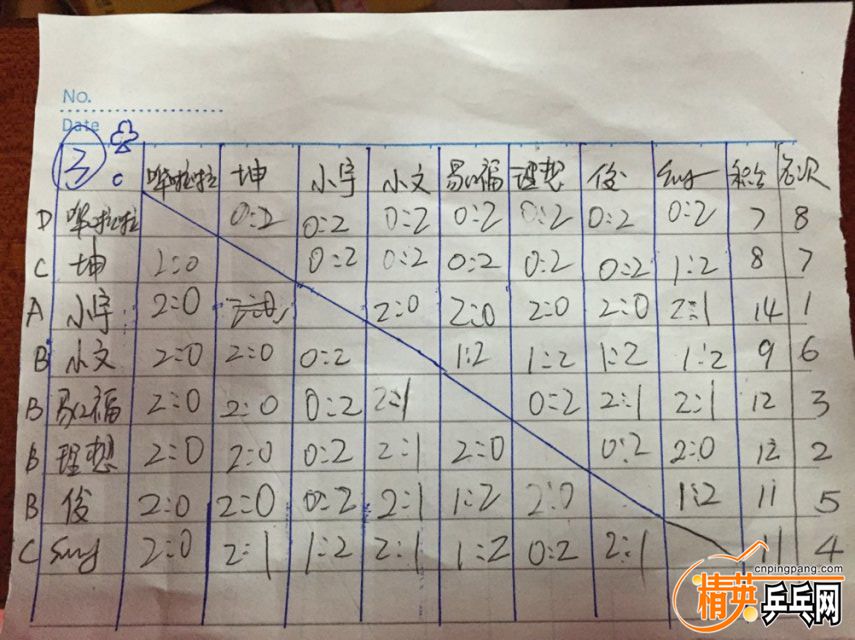 No.
Date
3 C 哗啦啦 坤 小宇 小文 易心福 理想 俊 Suy 积分 名次
D 哗啦啦 0:2 0:2 0:2 0:2 0:2 0:2 0:2 7 8
C 坤 2:0 0:2 0:2 0:2 0:2 0:2 1:2 8 7
A 小宇 2:0 2:0 2:0 2:0 2:0 2:0 2:1 14 1
B 小文 2:0 2:0 0:2 1:2 1:2 1:2 1:2 9 6
B 易心福 2:0 2:0 0:2 2:1 0:2 2:1 2:1 12 3
B 理想 2:0 2:0 0:2 2:1 2:0 0:2 2:0 12 2
B 俊 2:0 2:0 0:2 2:1 1:2 2:0 1:2 11 5
C Suy 2:0 2:1 1:2 2:1 1:2 0:2 2:1 11 4
cnpingpang.com
精英乒乓网